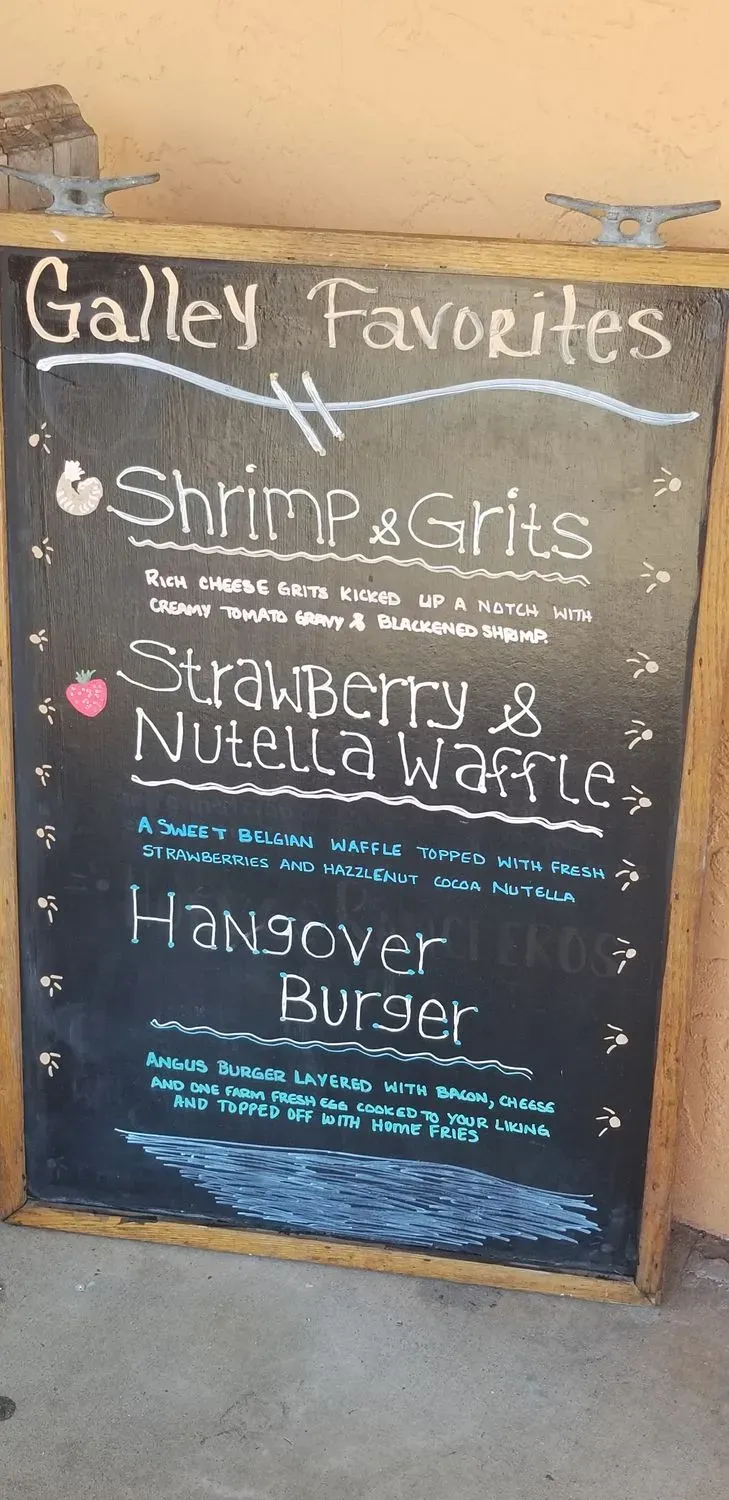 Galley Favorites
Shrimp & Grits
RICH CHEESE GRITS KICKED UP A NOTCH WITH
CREAMY TOMATO GRAVY & BLACKENED SHRIMP.
Strawberry &
Nutella Waffle
A SWEET BELGIAN WAFFLE TOPPED WITH FRESH
STRAWBERRIES AND HAZZLENUT COCOA NUTELLA
Hangover
Burger
ANGUS BURGER LAYERED WITH BACON, CHEESE
AND ONE FARM FRESH EGG COOKED TO YOUR LIKING
AND TOPPED OFF WITH HOME FRIES